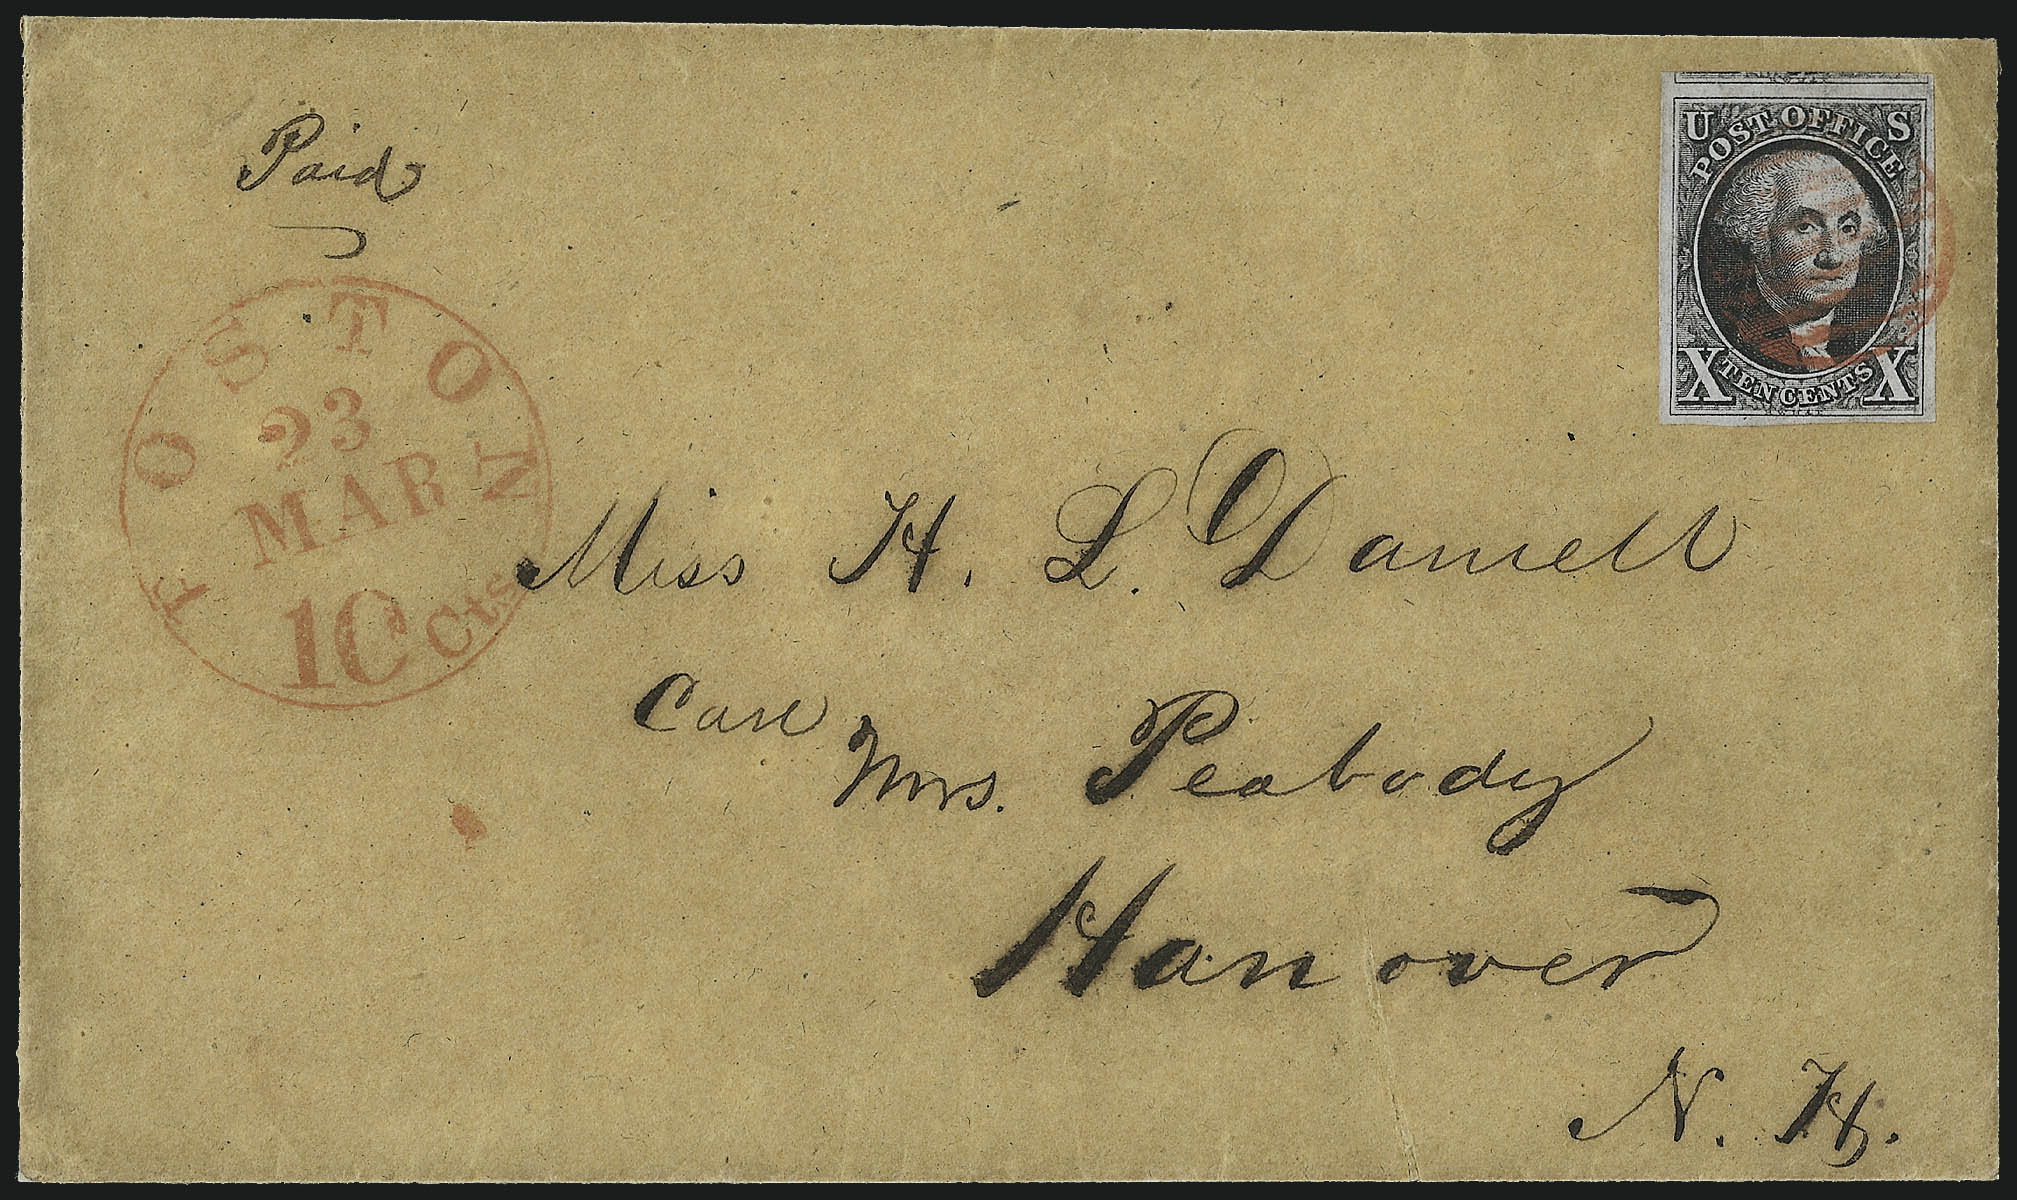 Paid
U S
POST OFFICE
X TEN CENTS X
BOSTON
23
MAR
10 Cts
Miss H. L. Daniell
Care
Mrs. Peabody
Hanover
N. H.